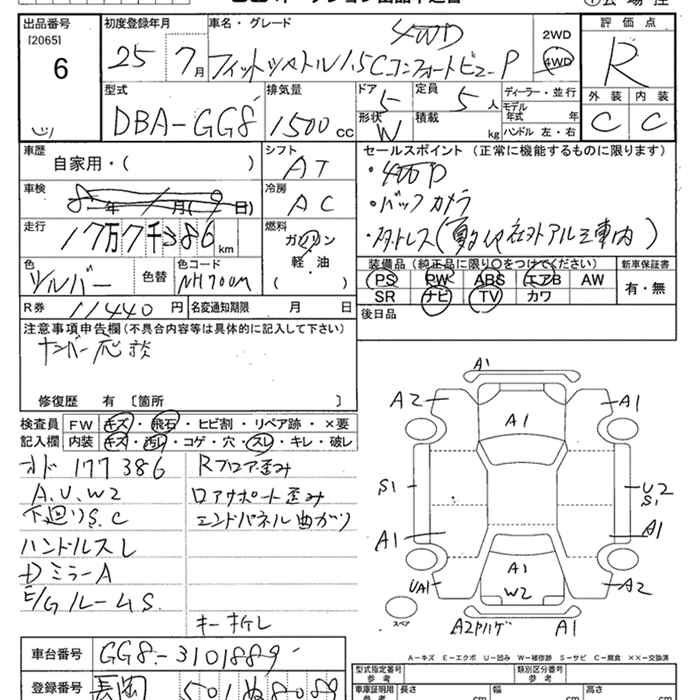 出品番号
[2065]
6
初度登録年月
25 7月
車名・グレード
4WD
フィットシャトル 1.5C コンフォートビュー P
2WD
4WD
評価点
R
型式
DBA-GG8
排気量
1500 cc
ドア 5
定員 5 人
形状 W
積載 kg
ディーラー・並行
モデル年式 年
ハンドル 左・右
外装 内装
C C
車歴
自家用・( )
シフト
AT
セールスポイント (正常に機能するものに限ります)
・4WD P
・バックカメラ
車検
年 月( 日)
冷房
AC
走行
17万7千386 km
燃料
ガソリン
軽・油
・( )
色
シルバー
色替
色コード
NH700M
装備品(純正品に限り○をつけてください)
新車保証書
PS PW ABS エアB AW
SR ナビ TV カワ
有・無
R券 11440 円
名変通知期限 月 日
後日品
注意事項申告欄(不具合内容等は具体的に記入して下さい)
ナンバー応談
修復歴 有 〔箇所 〕
検査員 FW キズ・飛石・ヒビ割・リペア跡・×要
記入欄 内装 キズ・汚レ・コゲ・穴・スレ・キレ・破レ
オド 177386
Rフロア歪み
A.U.W2
ロアサポート歪み
下廻りS.C
エンドパネル曲がり
ハンドルスレ
DミラーA
E/GルームS.
キー折レ
A1
A2
A1
A1
S1
U2
S1
A1
A1
A1
W2
UA1
A2
スペア
A1
A-キズ E-エクボ U-凹み W-補修跡 S-サビ C-腐食 ××-交換済
車台番号 GG8-3101889
型式指定番号 参考
類別区分番号 参考
登録番号 長岡 501 ぬ8089
車庫証明用 参考
長さ cm
幅 cm
高さ cm